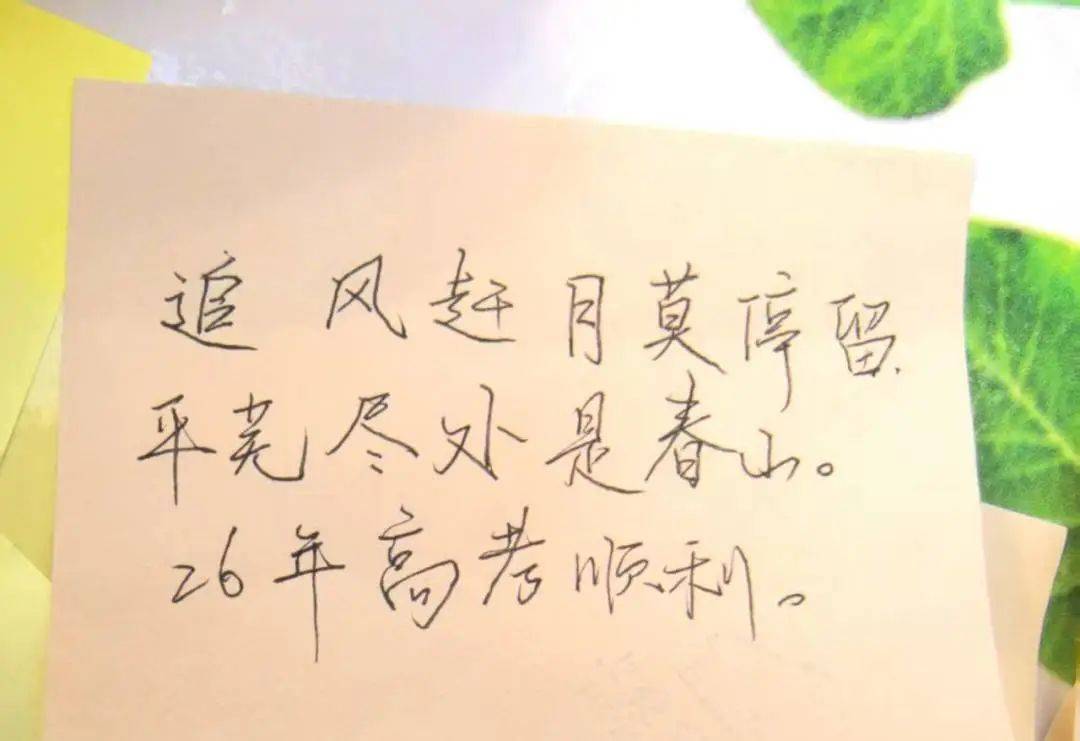 追风赶月莫停留
平芜尽处是春山。
26年高考顺利。